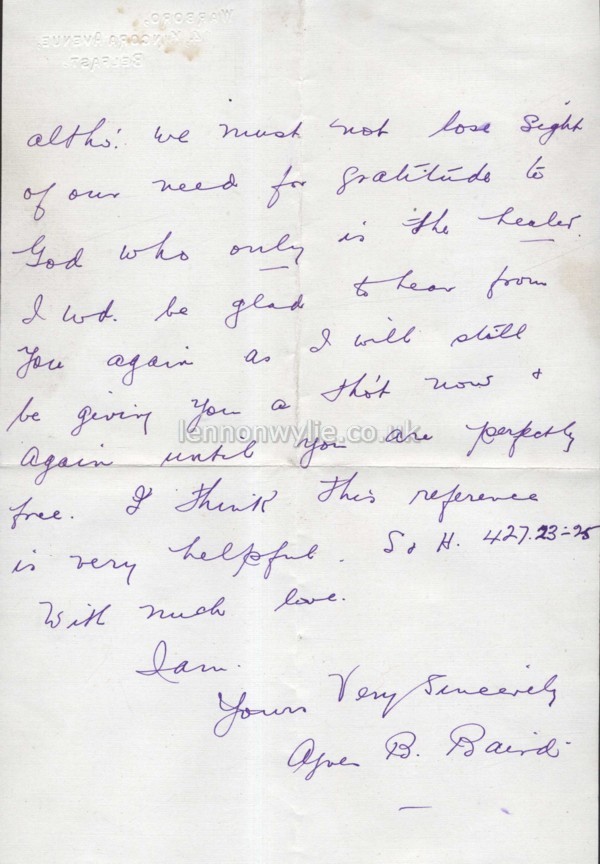 altho' we must not lose sight
of our need for gratitude to
God who only is the healer.
I wd. be glad to hear from
you again as I will still
be giving you a tho't now &
again until you are perfectly
free. I think this reference
is very helpful. S & H. 427.23-25
With much love.
I am.
Yours Very Sincerely
Agnes B. Baird
lennonwylie.co.uk
KINCORA AVENUE.
BELFAST.